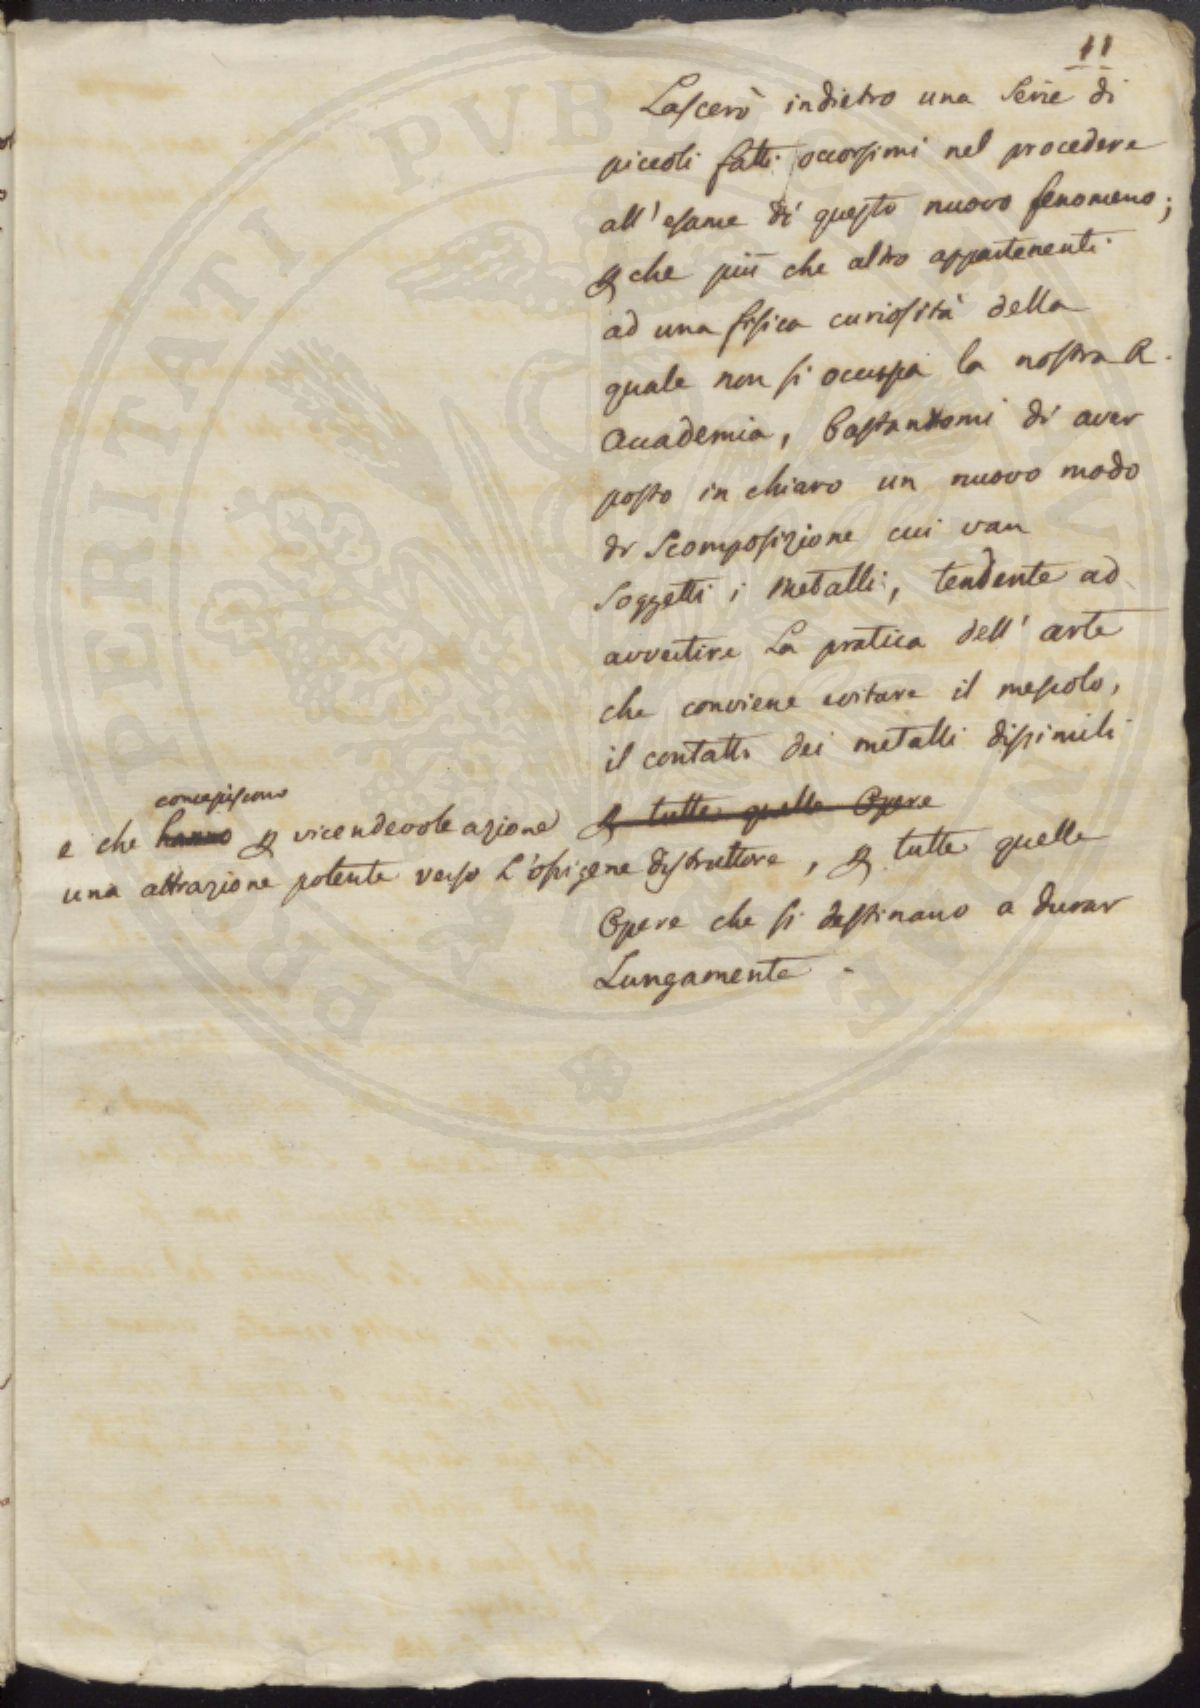 11
Lascerò indietro una Serie di
piccoli fatti occorsimi nel procedere
all'esame di questo nuovo fenomeno;
che più che altro appartenenti
ad una fisica curiosità della
quale non si occupa la nostra R.
Accademia, bastandomi di aver
posto in chiaro un nuovo modo
di Scomposizione cui van
Soggetti i Metalli, tendente ad
avvertire La pratica dell'arte
che conviene evitare il mescolo,
il contatto dei metalli dissimili
tutte quelle Opere
concepiscono
e che hanno vicendevole azione
una attrazione potente verso L'ossigene distruttore, tutte quelle
Opere che si destinano a durar
Lungamente.
PUBLICAE
PERITATI